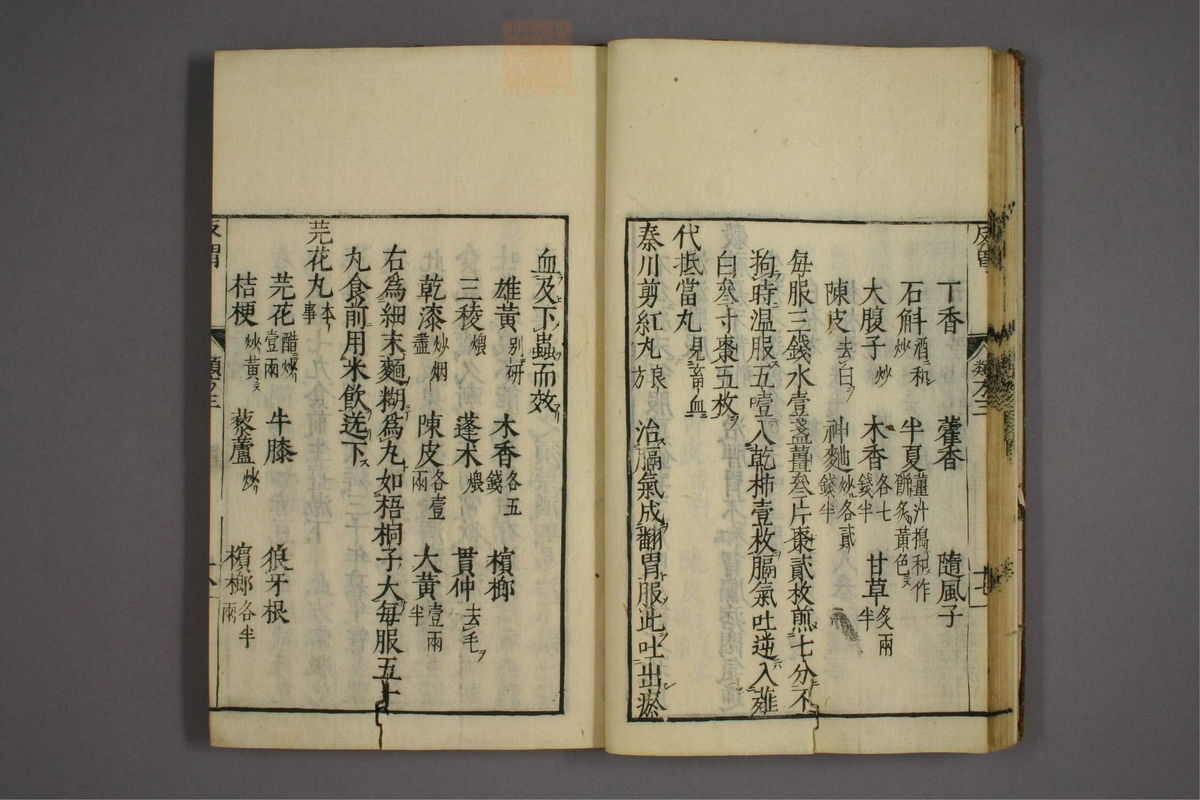 丁香　藿香　隨風子
石斛酒和炒　半夏薑汁搗和作餠炙黃色
大腹子炒　木香各七錢半　甘草炙兩半
陳皮去白　神麴炒各貳錢半
每服三錢水壹盞薑叄片棗貳枚煎七分不
拘時温服五噎入乾柿壹枚膈氣吐逆入薤
白叄寸棗五枚
代抵當丸見畜血
秦川剪紅丸良方　治膈氣成翻胃服此吐出瘀
血及下蟲而效
雄黃別研　木香各五錢　檳榔
三稜煨　蓬朮煨　貫仲去毛
乾漆炒烟盡　陳皮各壹兩　大黃壹兩半
右爲細末麵糊爲丸如梧桐子大每服五十
丸食前用米飲送下
芫花丸本事
芫花醋炒壹兩　牛膝　狼牙根
桔梗炒黃　藜蘆炒　檳榔各半兩
反胃　類方三　十八